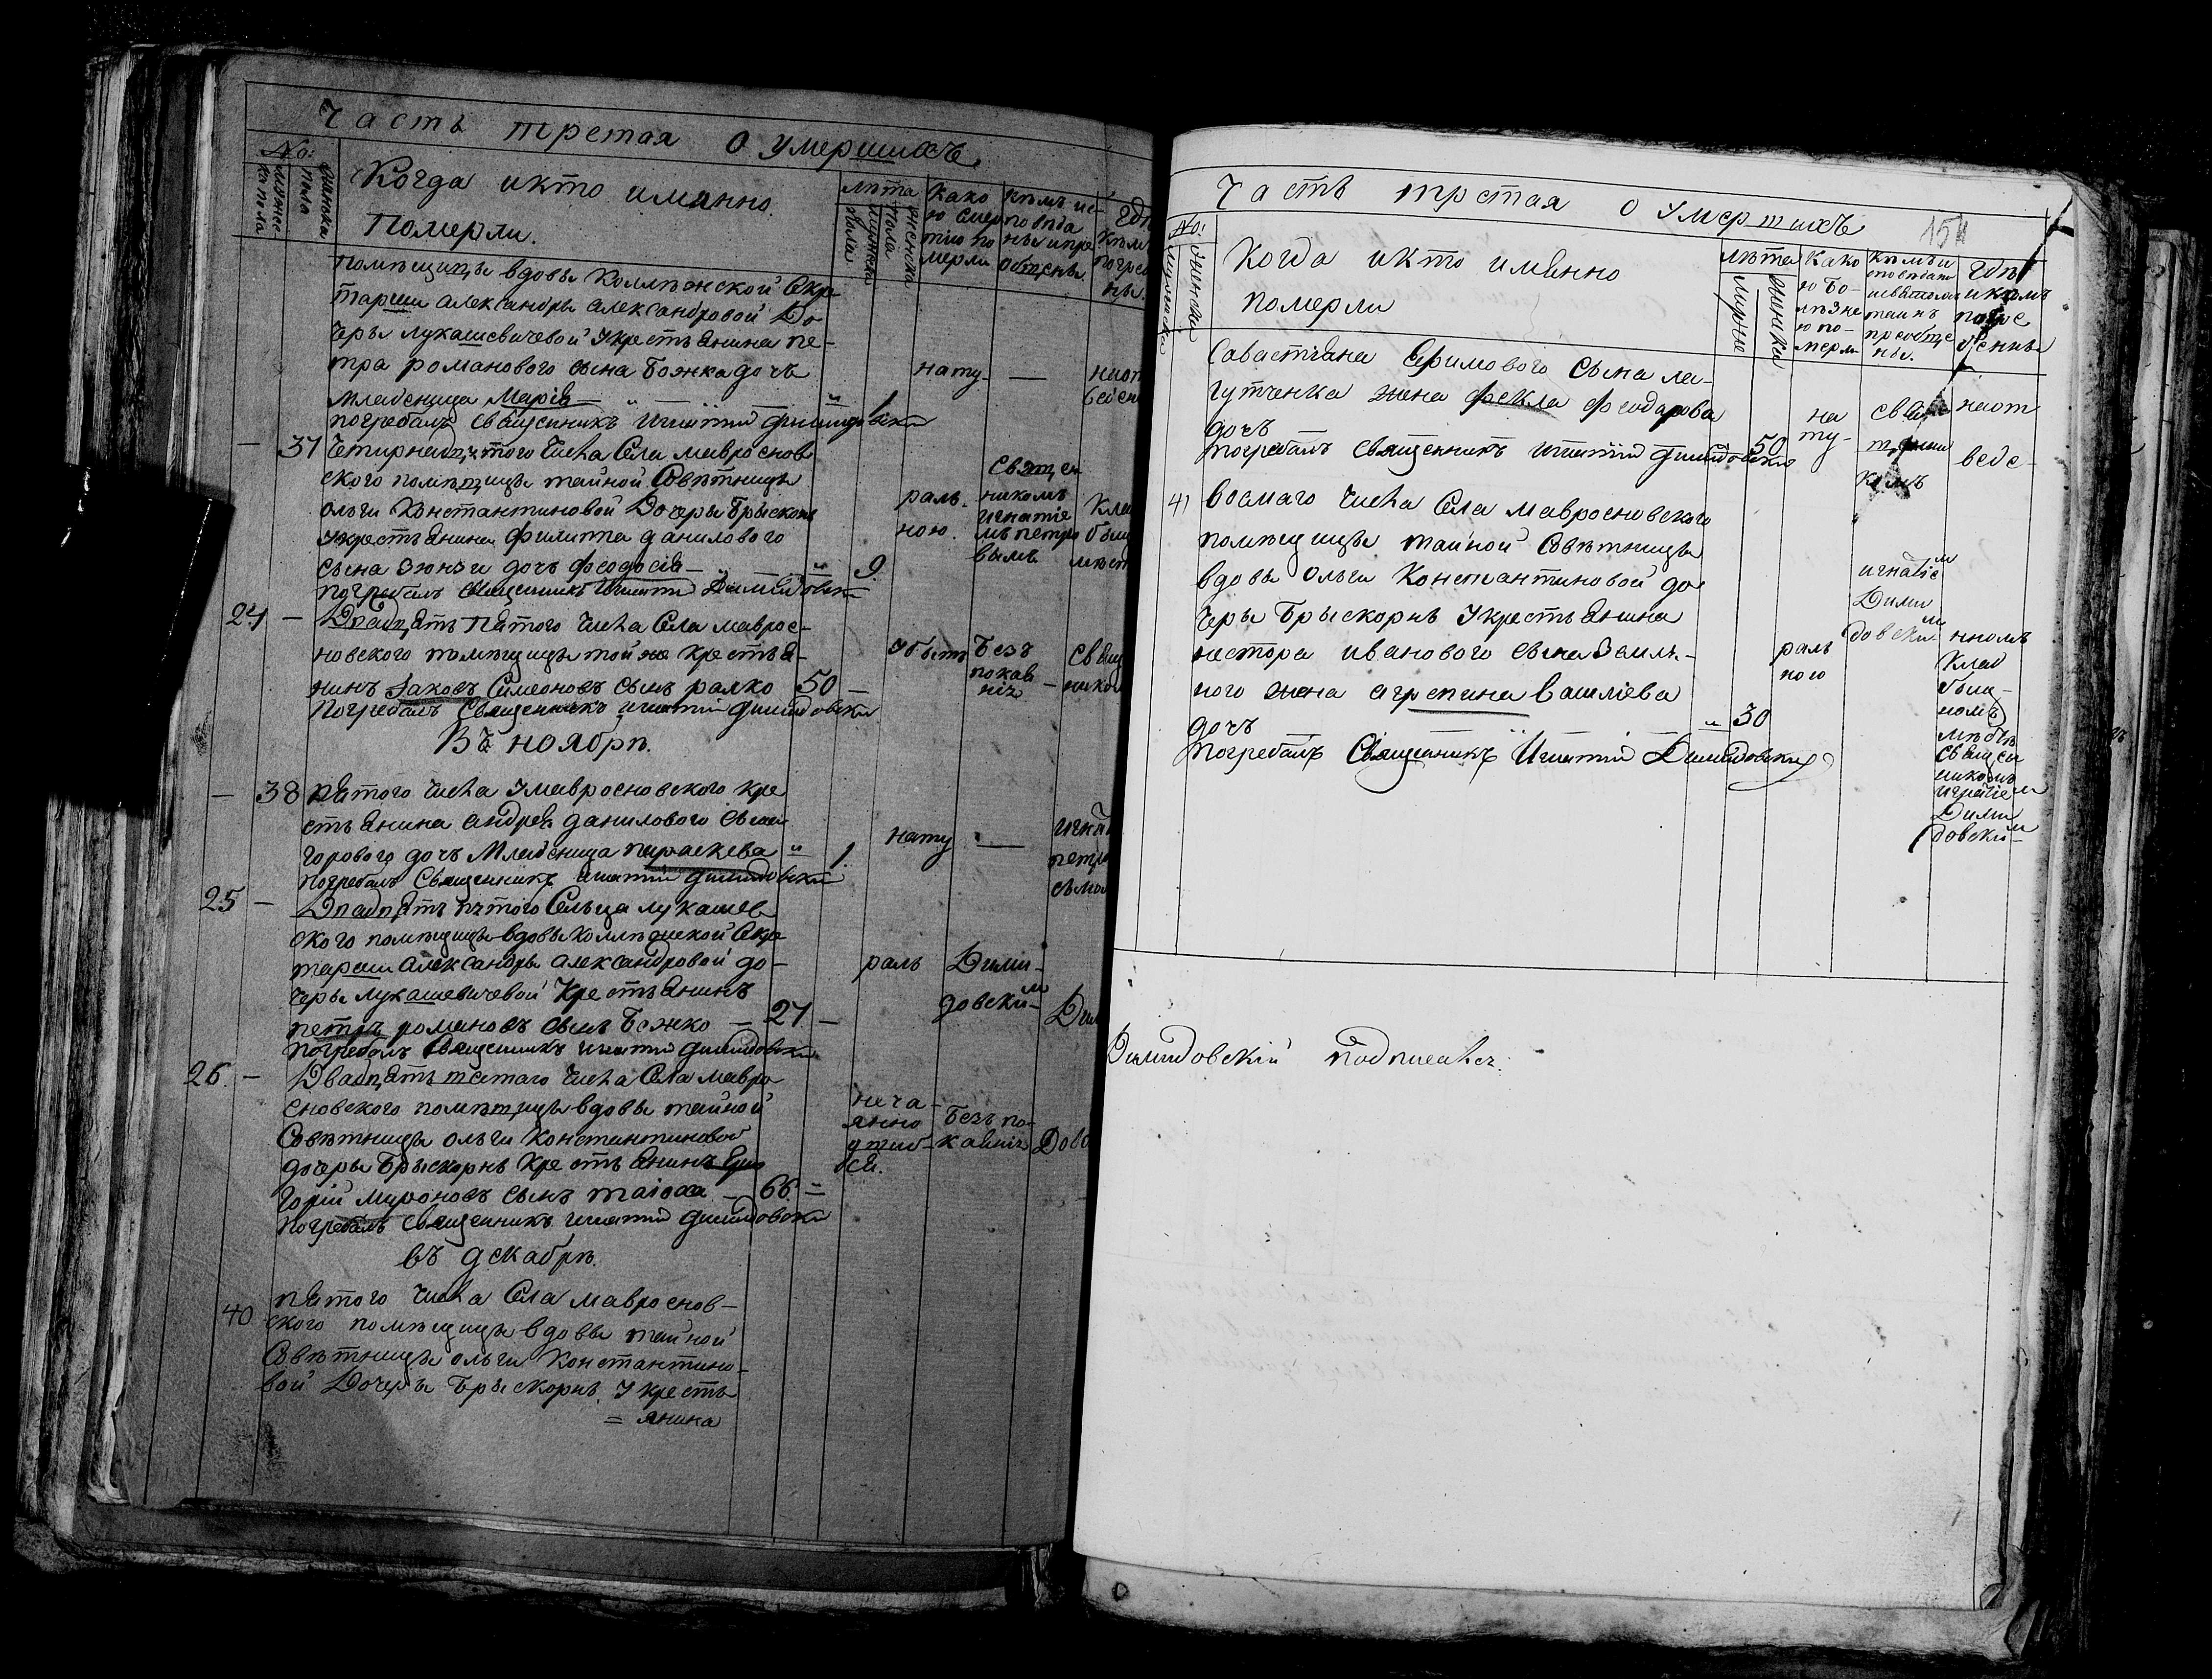 Часть третая о умершихъ
No:
мужеска пола
женска пола
Когда икто иманно
Померли.
лѣта
мужска пола
женска пола
Како
ю смер
тию по
мерли
кѣмъ ис-
повѣда
ны ипре
общены
помѣщицы вдовы Коллѣжской Секре
тарши Александры Александровой До
черы лукашевичевой Укрестьянина пе-
тра романового сына Божка дочь
младеница Марiя — " — " 1
погребалъ священникъ Игнатiй Дишидовски
нату- —
— 37 Четирнадцятого числа Села мавроснов
ского помѣщицы тайной Совѣтницы
ольги Константиновой Дочеры Брыскорнъ
укрестьянина Филиппа данилового
сына Зюнзи дочь феодосiя — " — " 9
погребалъ священникъ Игнатiй Димидовски
раль-
ною.
Священ
никомъ
Игнатiе
мъ петро
вымъ
24 — Двадцять пятого числа Села маврос-
новского помѣщицы той же крестья-
нинъ Iаковъ Симеоновъ сынъ ралко 50 —
Погребалъ Священникъ игнатiй димидовски
Убытъ
Безъ
покая
нiя —
Въ ноябрѣ.
— 38 пятого числа Умавросновского кре
стьянина андрея данилового сына
горового дочь Младеница параскева " 1.
погребалъ Священникъ игнатiй димидовски
нату —
25 — Двадцять пятого Сельца лукашев
ского помѣщицы вдовы коллѣжской Секре
тарши Александры александровой до-
черы лукашевичевой Крестьянинъ
петръ романовъ сынъ Божко — 27 —
погребалъ Священникъ игнатiй димидовски
раль
Дими-
довским
26. — Двадцять шетаго числа Села мавро
сновского помѣщицы вдовы тайной
Совѣтницы ольги Константиновой
дочеры Брыскорнъ Крестьянинъ Гри
горiй мироновъ сынъ — 66. =
погребалъ Священникъ игнатiй димидовски
неча-
янно
ся.
Безъ по-
каянiя
въ декабрѣ.
40 пятого числа Села мавроснов-
ского помѣщицы вдовы тайной
Совѣтницы ольги Константино-
вой Дочеры Брыскорнъ. Укресть
= янина
Часть третая о умершихъ
154
No:
мужеска
женска
Когда икто иманно
померли
лѣта
мужие
женска
Како
ю бо-
лѣзне
ю по-
мерли
Кѣмъ и
таинъ
прообще
ны.
Гдѣ
икѣмъ
погре
бенны
Савастiана Ефимового Сына ла-
гутченка жена фекла феодорова
дочь 50
погребалъ священникъ игнатiй димидовски
на
ту-
свя
комъ
наот
веде-
41 восмаго числа Села мавросновского
помѣщицы тайной Совѣтницы
вдовы ольги Константиновой до
черы Брыскорнъ Укрестьянина
нестора иванового сына
ного жена агрепина василiева
дочь " 30
погребалъ Священникъ Игнатiй Димидовски
раль
ною
игнатiем
Дими
довским
нномъ
клад
бищ-
номъ
мѣстѣ
священ
никомъ
игнатiем
Дими
довским
Димидовскiй подписался.